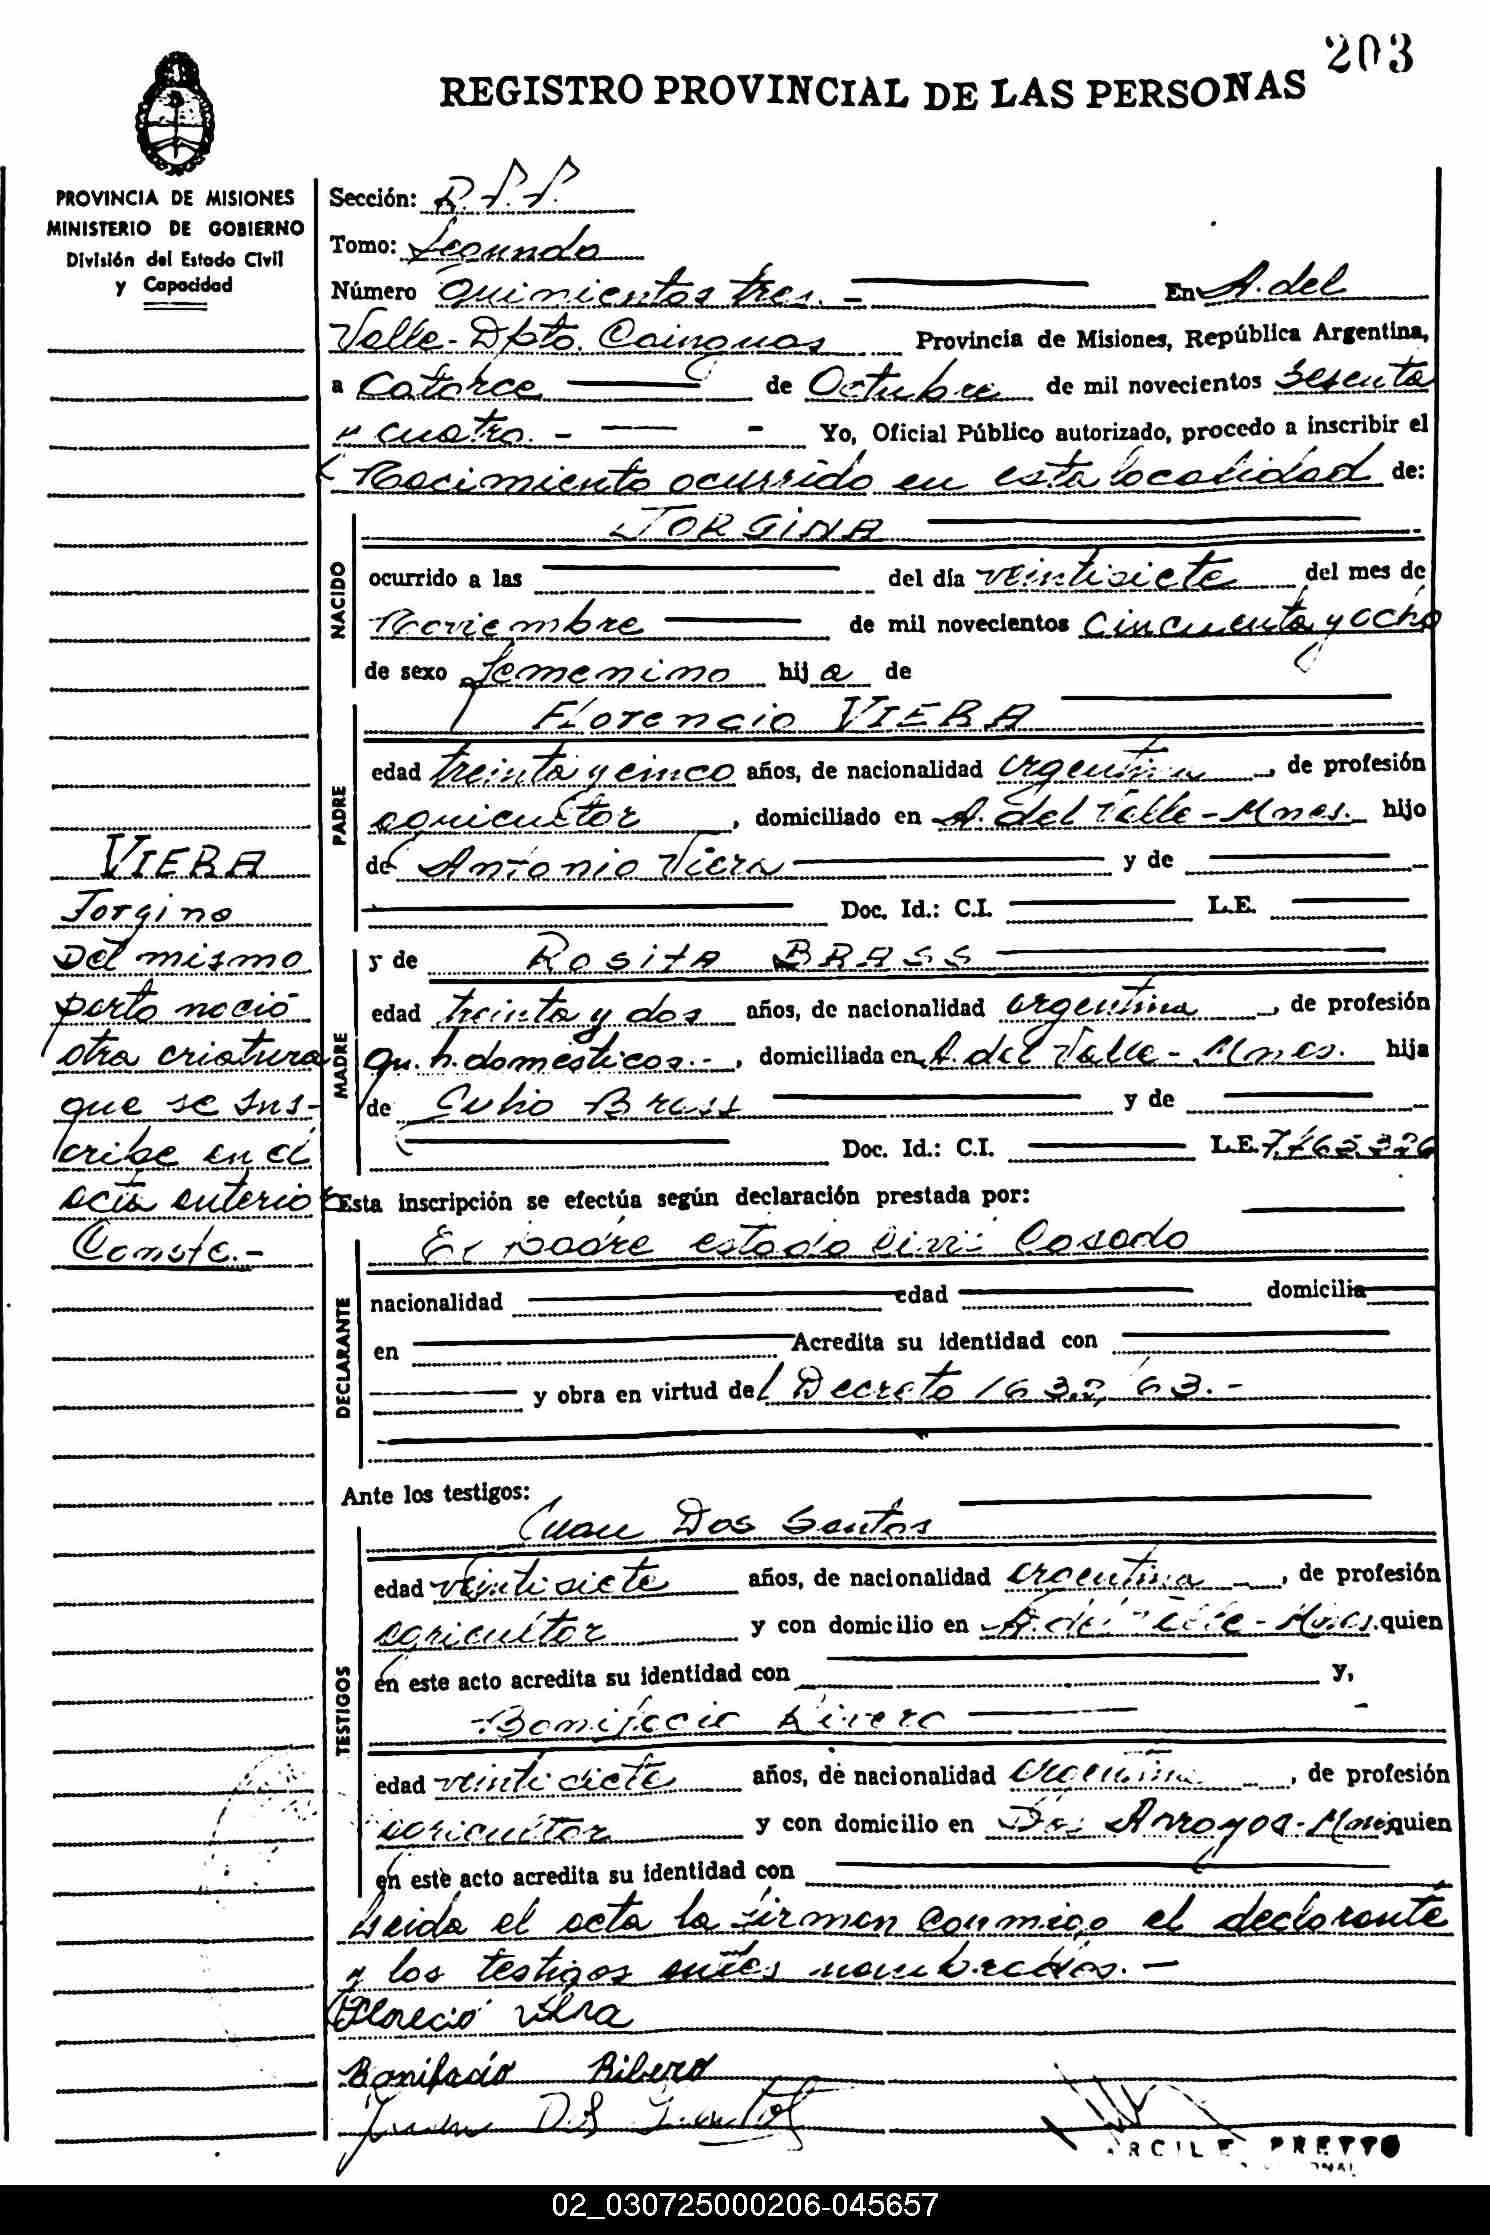 203
REGISTRO PROVINCIAL DE LAS PERSONAS
PROVINCIA DE MISIONES
MINISTERIO DE GOBIERNO
División del Estado Civil
y Capacidad
VIERA
Jorgina
Del mismo
parto nació
otra criatura
que se ins-
cribe en el
acta anterior
Conste.-
Sección:
Tomo: Segundo
Número Quinientos tres.- En A. del
Valle-Dpto. Cainguas Provincia de Misiones, República Argentina,
a Catorce de Octubre de mil novecientos sesenta
y cuatro.- - Yo, Oficial Público autorizado, procedo a inscribir el
Nacimiento ocurrido en esta localidad de:
JORGINA
NACIDO
ocurrido a las del día veintisiete del mes de
Noviembre de mil novecientos cincuenta y ocho
de sexo femenino hija de
Florencio VIERA
PADRE
edad treinta y cinco años, de nacionalidad argentina, de profesión
agricultor, domiciliado en A. del Valle-Mnes. hijo
de Antonio Viera y de
Doc. Id.: C.I. L.E.
MADRE
y de Rosita BRASS
edad treinta y dos años, de nacionalidad argentina, de profesión
qu. h. domésticos.-, domiciliada en A. del Valle-Mnes. hija
de Julio Brass y de
Doc. Id.: C.I. L.E.
Esta inscripción se efectúa según declaración prestada por:
El padre estado civil Casado
DECLARANTE
nacionalidad edad domicilia
en Acredita su identidad con
y obra en virtud del Decreto 1632/63.-
Ante los testigos:
Juan Dos Santos
TESTIGOS
edad veintisiete años, de nacionalidad argentina, de profesión
agricultor y con domicilio en A. del Valle-Mnes. quien
en este acto acredita su identidad con y,
Bonifacio Rivero
edad veintisiete años, de nacionalidad argentina, de profesión
agricultor y con domicilio en Dos Arroyos-Mnes quien
en este acto acredita su identidad con
Leida el acta la firman conmigo el declarante
y los testigos antes nombrados.-
Florecio
Bonifacio Ribero
Juan
PRETTO
02_030725000206-045657